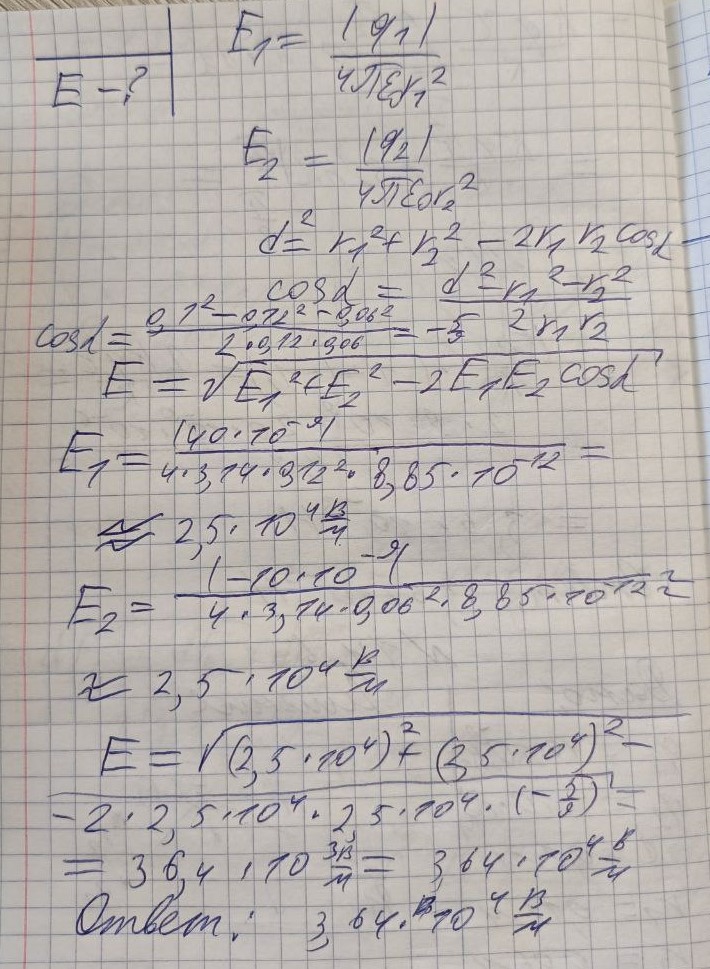 E₁ = |q₁| / 4πε₀r₁²
E - ?
E₂ = |q₂| / 4πε₀r₂²
d² = r₁² + r₂² - 2r₁ r₂ cosα
cosα = d² - r₁² - r₂² / 2 r₁ r₂
cosα = 0,1² - 0,12² - 0,06² / 2 · 0,12 · 0,06 = - 5/9
E = √E₁² + E₂² - 2E₁E₂ cosα
E₁ = |40 · 10⁻⁹| / 4 · 3,14 · 0,12² · 8,85 · 10⁻¹² =
≈ 2,5 · 10⁴ В/м
E₂ = |-10 · 10⁻⁹| / 4 · 3,14 · 0,06² · 8,85 · 10⁻¹² ≈
≈ 2,5 · 10⁴ В/м
E = √(2,5 · 10⁴)² + (2,5 · 10⁴)² -
- 2 · 2,5 · 10⁴ · 2,5 · 10⁴ · (- 5/9) =
= 36,4 · 10³ В/м = 3,64 · 10⁴ В/м
Ответ: 3,64 · 10⁴ В/м